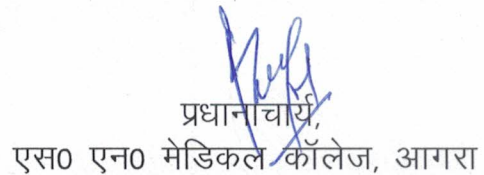 प्रधानाचार्य,
एस0 एन0 मेडिकल कॉलेज, आगरा